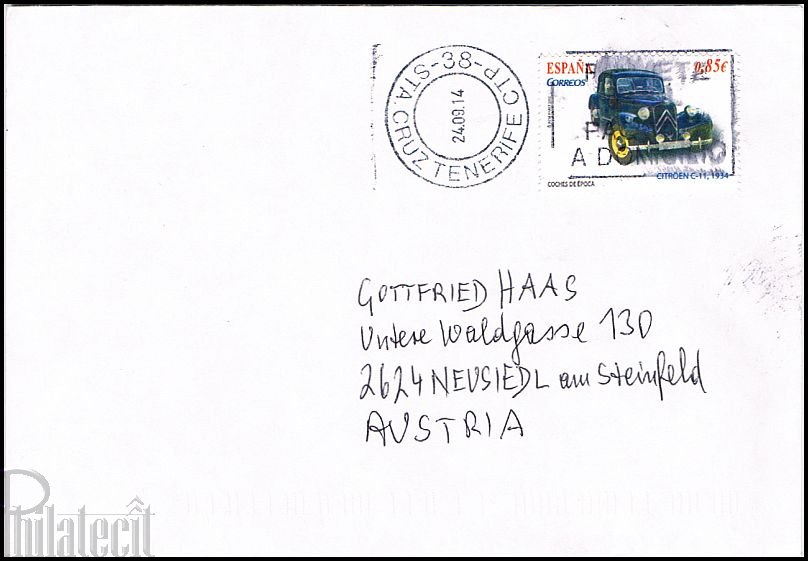 38-STA. CRUZ TENERIFE CTP-
24.09.14
ESPAÑA 0,85€
CORREOS
A DOMICILIO
COCHES DE ÉPOCA
CITROËN C-11, 1934
GOTTFRIED HAAS
Untere Waldgasse 130
2624 NEUSIEDL am Steinfeld
AUSTRIA
Philatecît